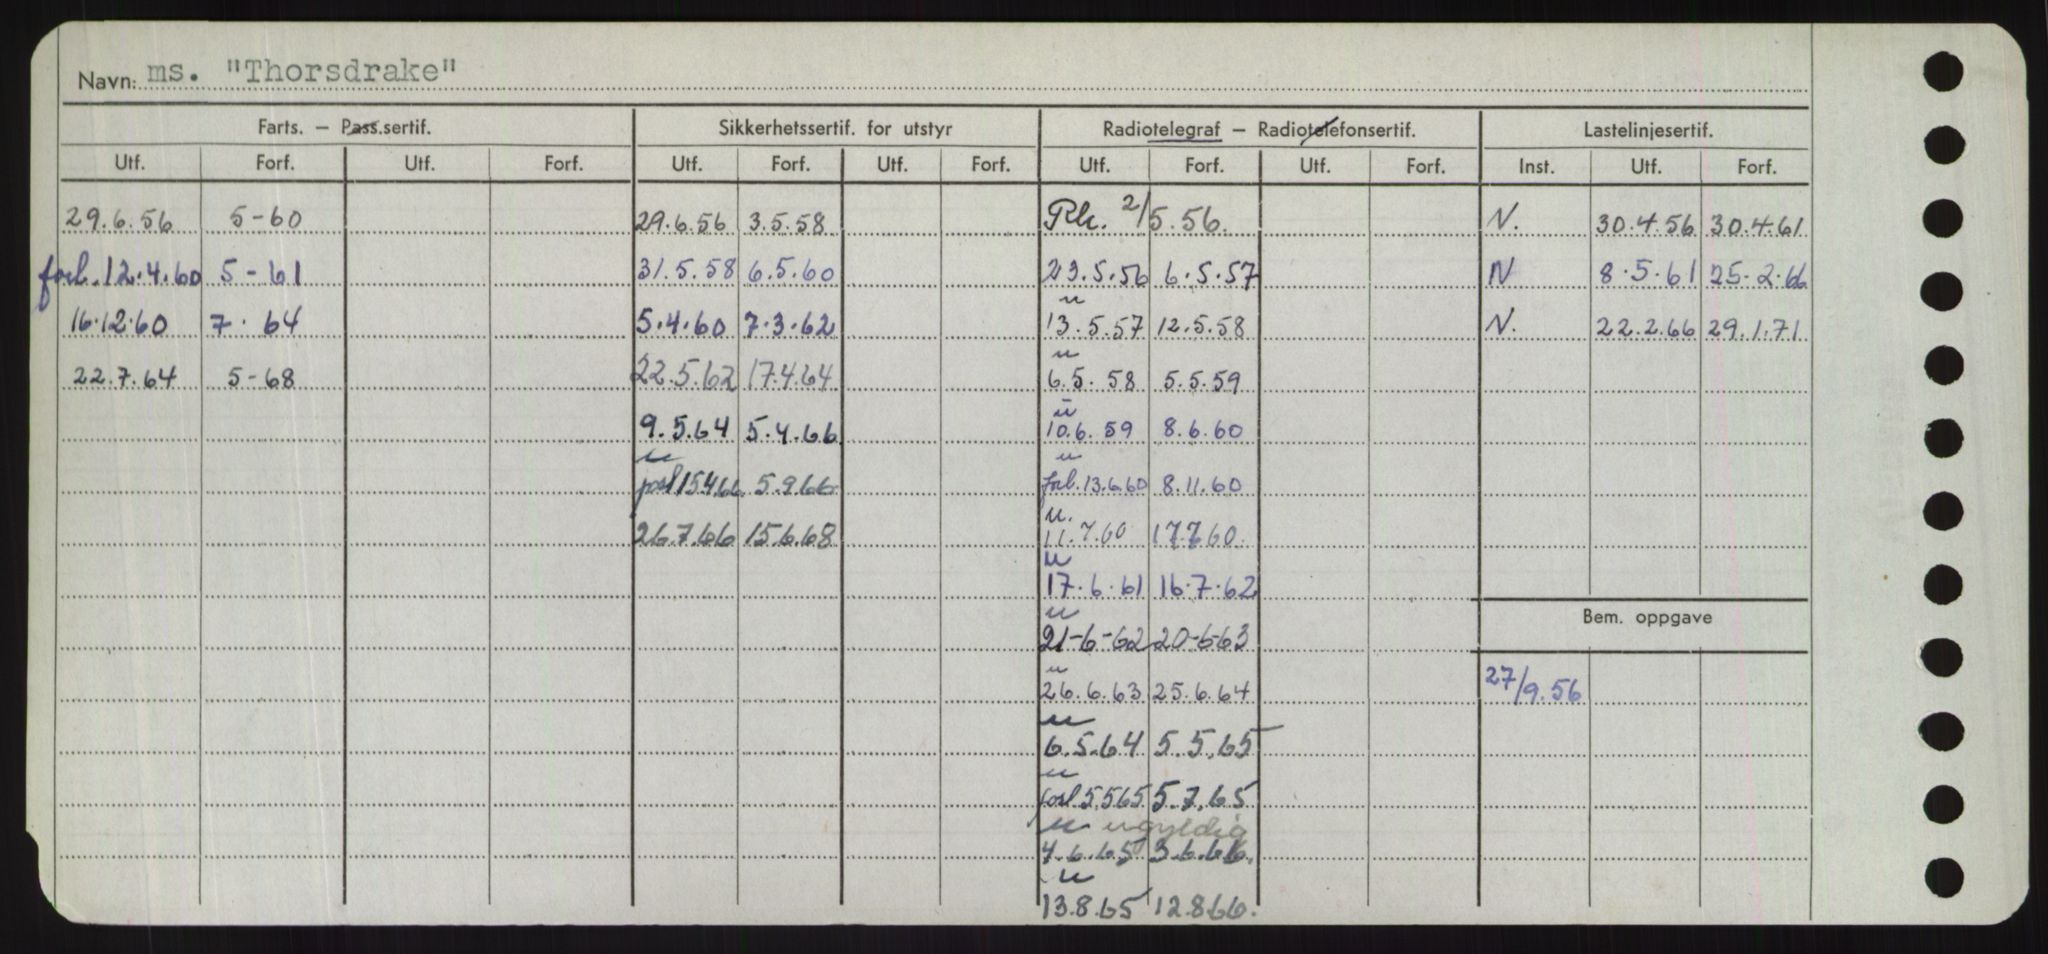 Navn: ms. "Thorsdrake"
Farts. – Pass.sertif. Sikkerhetssertif. for utstyr Radiotelegraf – Radiotelefonsertif. Lastelinjesertif.
Utf. Forf. Utf. Forf. Utf. Forf. Utf. Forf. Utf. Forf. Utf. Forf. Inst. Utf. Forf.
29.6.56 5-60 29.6.56 3.5.58 Rk. 2/5.56. N. 30.4.56 30.4.61
forl. 12.4.60 5-61 31.5.58 6.5.60 23.5.56 6.5.57 N 8.5.61 25.2.66
u
16.12.60 7. 64 5.4.60 7.3.62 13.5.57 12.5.58 N. 22.2.66 29.1.71
u
22.7.64 5-68 22.5.62 17.4.64 6.5.58 5.5.59
u
9.5.64 5.4.66 10.6.59 8.6.60
u u
forl 15.4.66 5.9.66 forl. 13.6.60 8.11.60
u.
26.7.66 15.6.68 11.7.60 17.7.60.
u
17.6.61 16.7.62
u Bem. oppgave
21-6-62 20-6-63
u
26.6.63 25.6.64 27/9.56
u
6.5.64 5.5.65
u
forl 5.5.65 5.7.65
u ugyldig
4.6.65 3.6.66.
u
13.8.65 12.8.66.